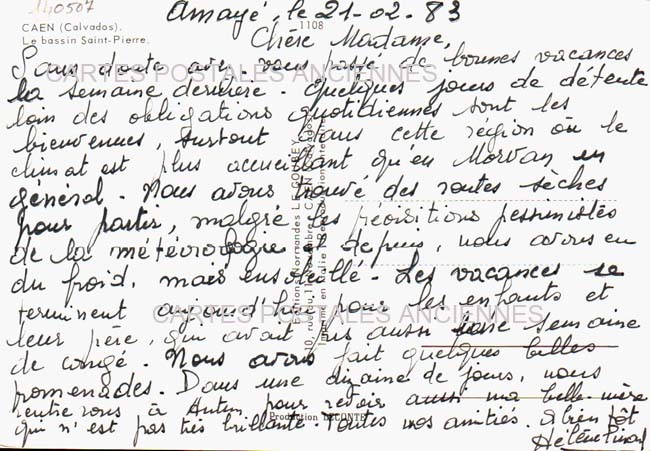 140507
Amayé, le 21-02-83
CAEN (Calvados).
1108
Le bassin Saint-Pierre.
Chère Madame,
Sans doute avez-vous passé de bonnes vacances
CARTES POSTALES ANCIENNES
la semaine dernière. Quelques jours de détente
loin des obligations quotidiennes sont les
bienvenues, surtout dans cette région où le
climat est plus accueillant qu'en Morvan en
général. Nous avons trouvé des routes sèches
pour partir, malgré les prévisions pessimistes
de la météorologie et depuis, nous avons eu
du froid, mais ensoleillé. Les vacances se
terminent aujourd'hui pour les enfants et
CARTES POSTALES ANCIENNES
leur père, qui avait pris aussi une semaine
de congé. Nous avons fait quelques belles
promenades. Dans une dizaine de jours, nous
rentrerons à Autun pour revoir aussi ma belle-mère
Production LECONTE
qui n'est pas très brillante. Toutes nos amitiés. A bientôt
Hélène